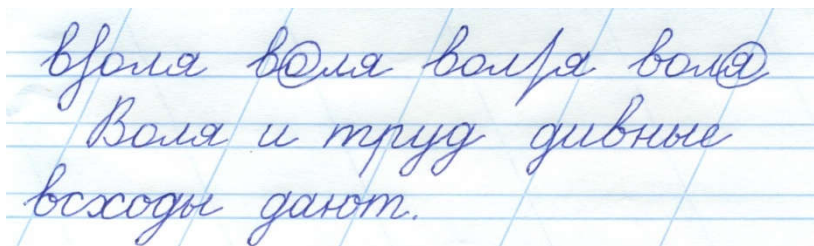 воля воля воля воля
Воля и труд дивные
всходы дают.